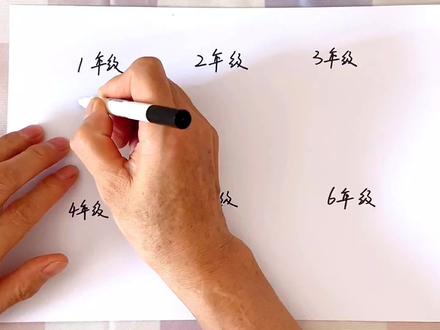 1年级 2年级 3年级
4年级 级 6年级